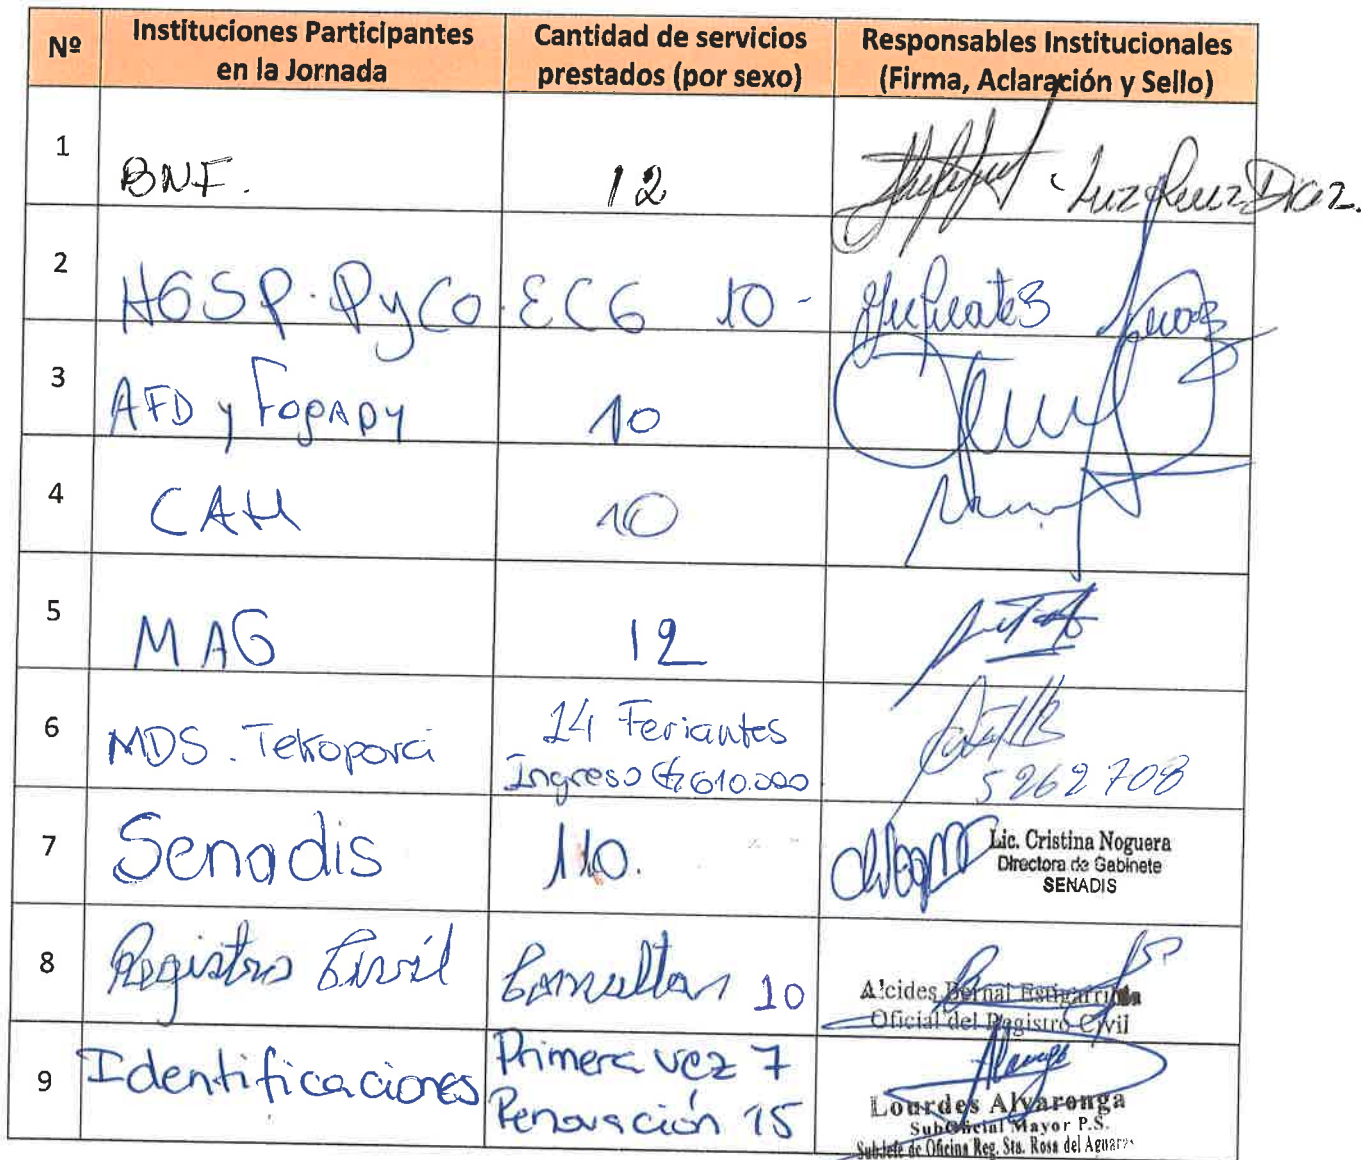 Nº
Instituciones Participantes
en la Jornada
Cantidad de servicios
prestados (por sexo)
Responsables Institucionales
(Firma, Aclaración y Sello)
1
BNF.
12
Luz Ruiz Diaz.
2
HGSP. PyCo
ECG 10 -
3
AFD y Fogapy
10
4
CAH
10
5
MAG
12
6
MDS. Tekoporã
14 Feriantes
Ingreso ₲ 610.000
5262708
7
Senadis
110.
Lic. Cristina Noguera
Directora de Gabinete
SENADIS
8
Registro Civil
Consultas 10
Alcides Bernal Estigarribia
Oficial del Registro Civil
9
Identificaciones
Primera vez 7
Renovación 15
Lourdes Alvaronga
SubOficial Mayor P.S.
SubJefe de Oficina Reg. Sta. Rosa del Aguara